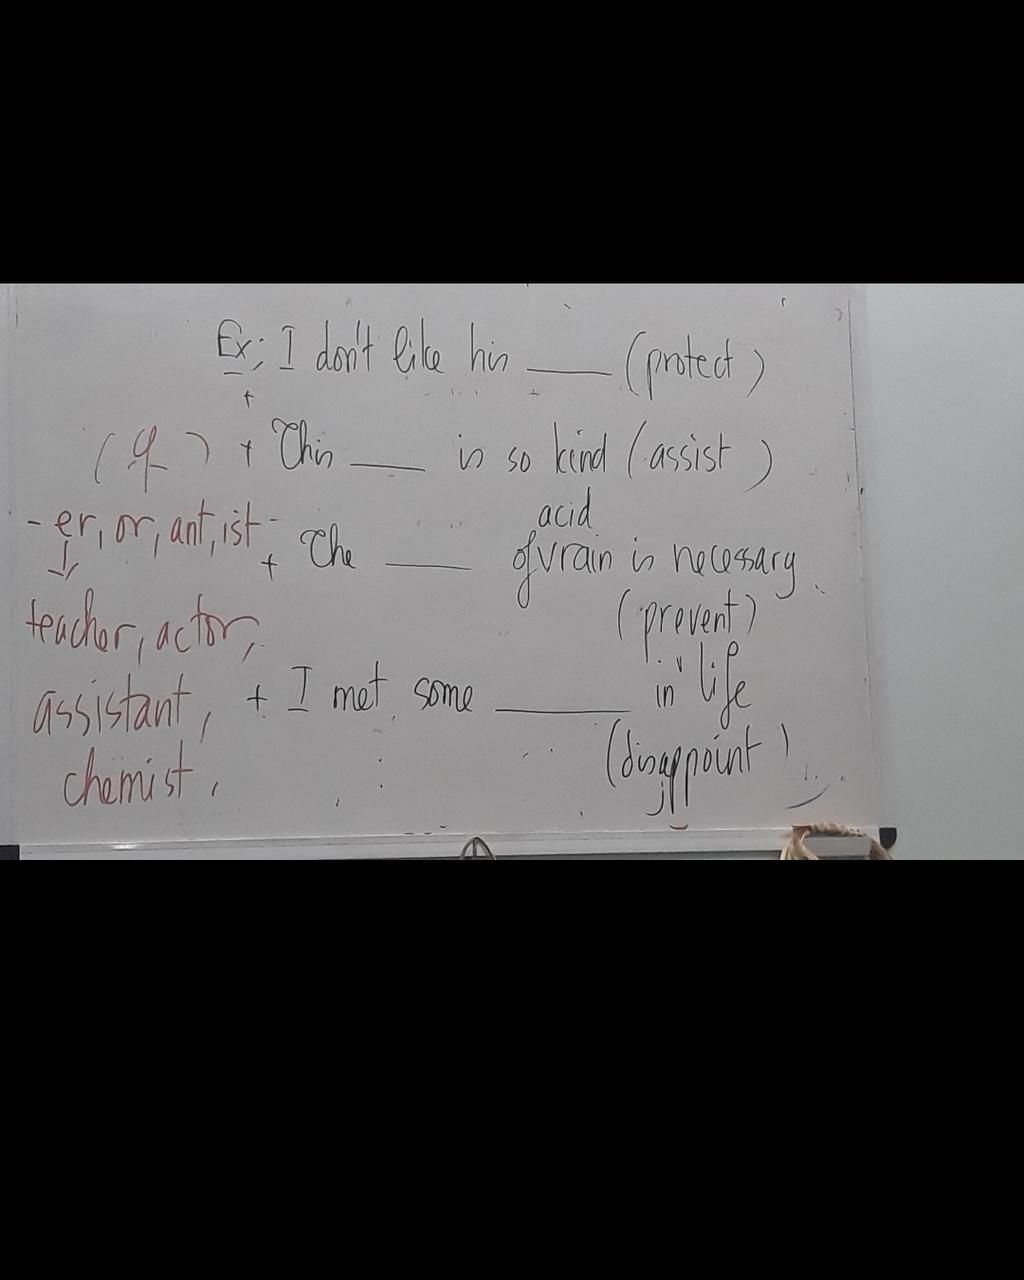 Ex: I don't like his ____ (protect)
+ This ____ is so kind (assist)
- er, or, ant, ist -
acid
+ The ____ of v rain is necessary
(prevent)
teacher, actor,
+ I met some ____ in life
assistant,
(disappoint)
chemist,